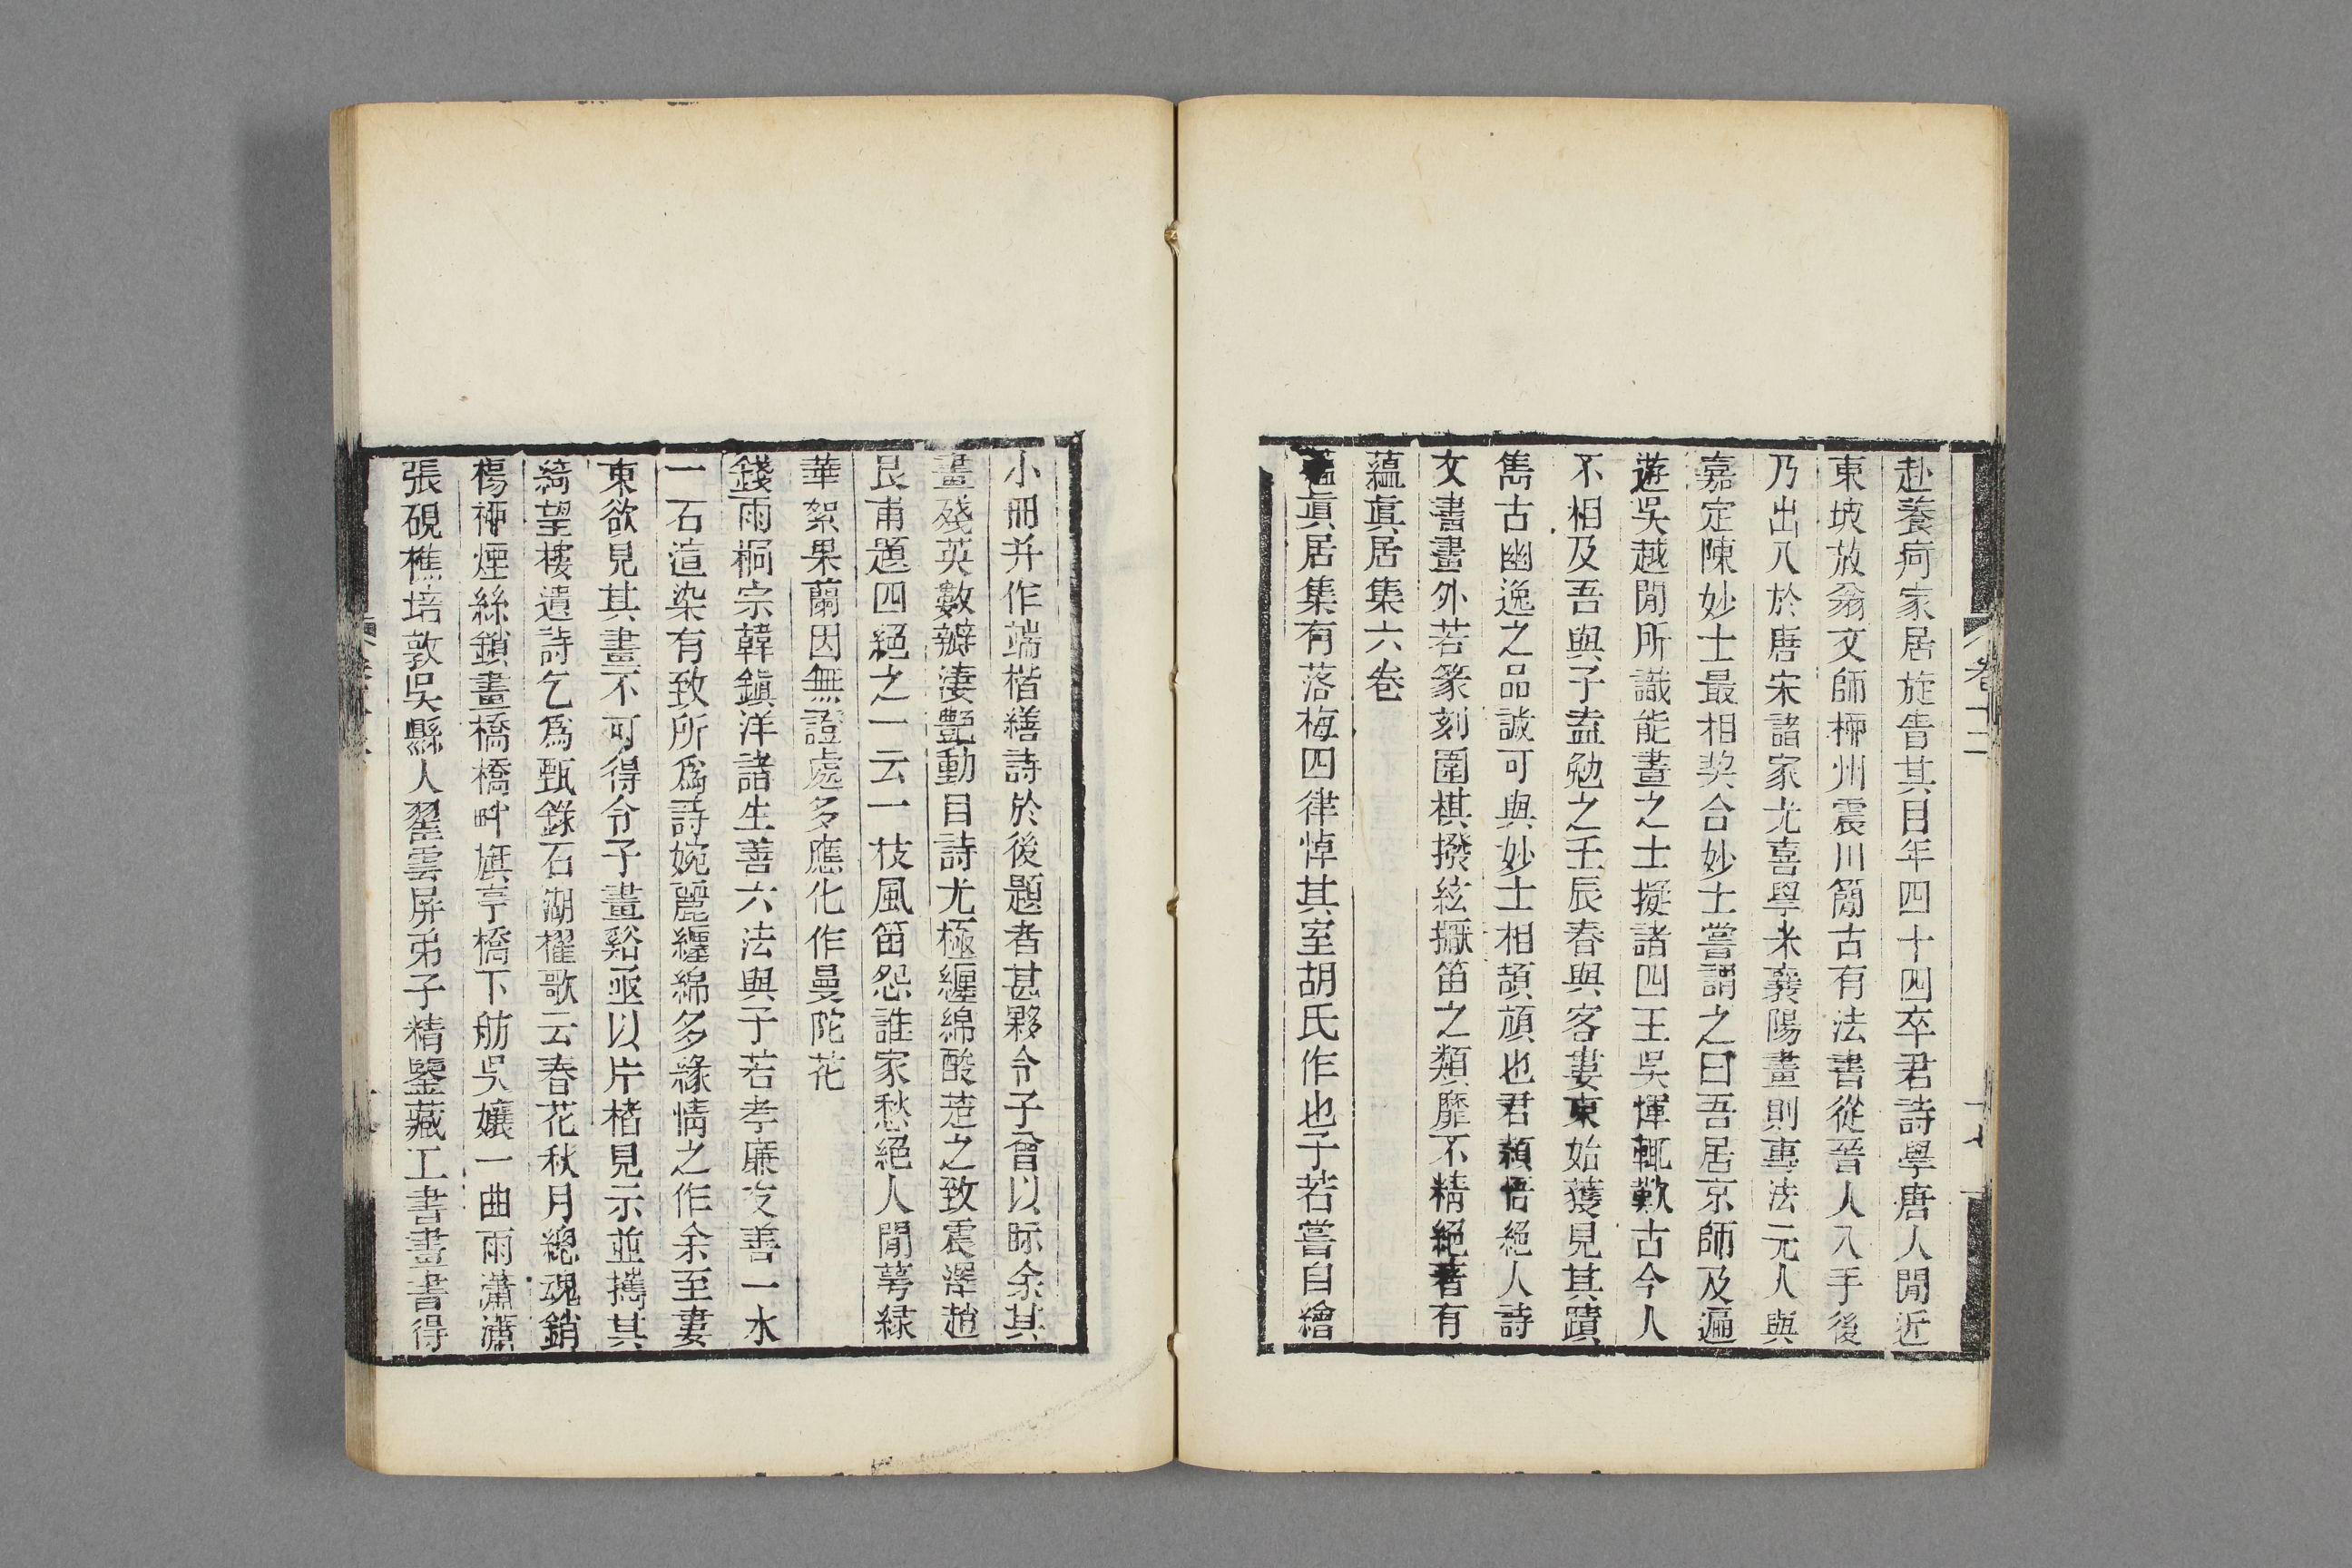 赴養疴家居旋眚其目年四十四卒君詩學唐人閒近
東坡放翁文師柳州震川簡古有法書從晉人入手後
乃出入於唐宋諸家尤喜學米襄陽畫則專法元人與
嘉定陳妙士最相契合妙士嘗謂之曰吾居京師及遍
遊吳越閒所識能畫之士擬諸四王吳惲輒歎古今人
不相及吾與子盍勉之壬辰春與客婁東始獲見其蹟
雋古幽逸之品誠可與妙士相頡頏也君穎悟絕人詩
文書畫外若篆刻圍棋撥絃擫笛之類靡不精絕著有
蘊眞居集六卷
蘊眞居集有落梅四律悼其室胡氏作也子若嘗自繪
小冊并作端楷繕詩於後題者甚夥令子曾以眎余其
畫殘英數瓣淒艷動目詩尤極纏綿酸楚之致震澤趙
艮甫題四絕之一云一枝風笛怨誰家愁絕人閒萼綠
華絮果蘭因無證處多應化作曼陀花
錢雨桐宗韓鎭洋諸生善六法與子若孝廉友善一水
一石渲染有致所爲詩婉麗纏綿多緣情之作余至婁
東欲見其畫不可得令子畫谿亟以片楮見示並攜其
綺望樓遺詩乞爲甄錄石湖櫂歌云春花秋月總魂銷
楊柳煙絲鎖畫橋橋畔旗亭橋下舫吳孃一曲雨瀟瀟
張硯樵培敦吳縣人翟雲屏弟子精鑒藏工書畫書得
卷十二